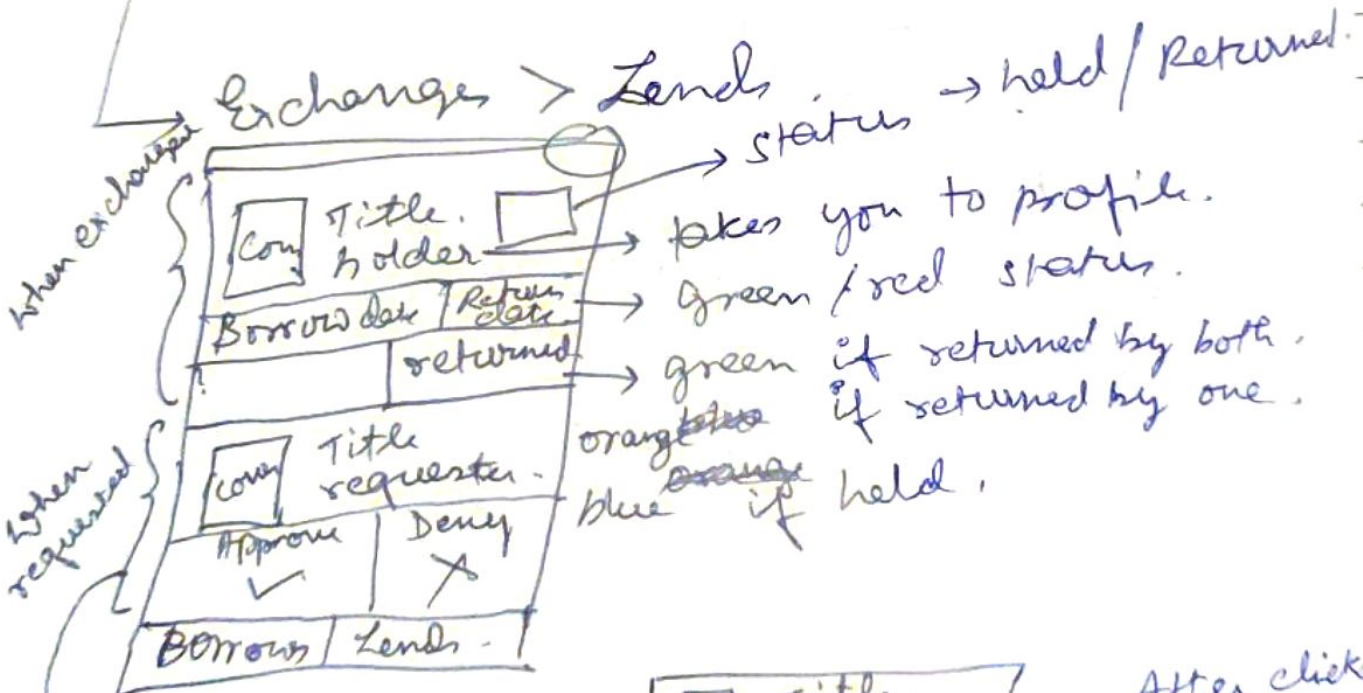 Exchanges > Lends
status → held / Returned.
When exchanged
Title.
Cover
holder → takes you to profile.
Borrow date
Return date → green / red status.
returned → green if returned by both.
orange if returned by one.
blue if held.
When requested
Cover
Title
requester.
Approve ✓
Deny ✗
Borrows
Lends.
After click